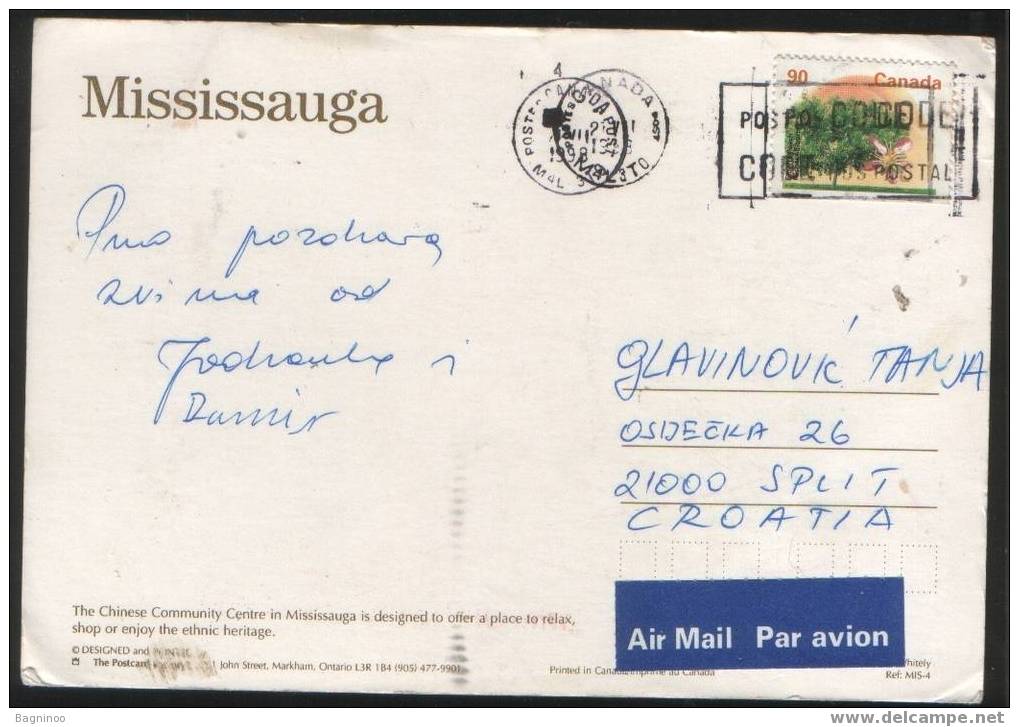 Mississauga
90 Canada
Puno pozdrava
svima od
Jadranke i
Damir
GLAVINOVIĆ TANJA
OSIJEČKA 26
21000 SPLIT
CROATIA
The Chinese Community Centre in Mississauga is designed to offer a place to relax,
shop or enjoy the ethnic heritage.
© DESIGNED and
The Postcard John Street, Markham, Ontario L3R 1B4 (905) 477-9901
Printed in Canada/Imprimé au Canada
Ref: MIS-4
Air Mail Par avion
Bagninoo
www.delcampe.net